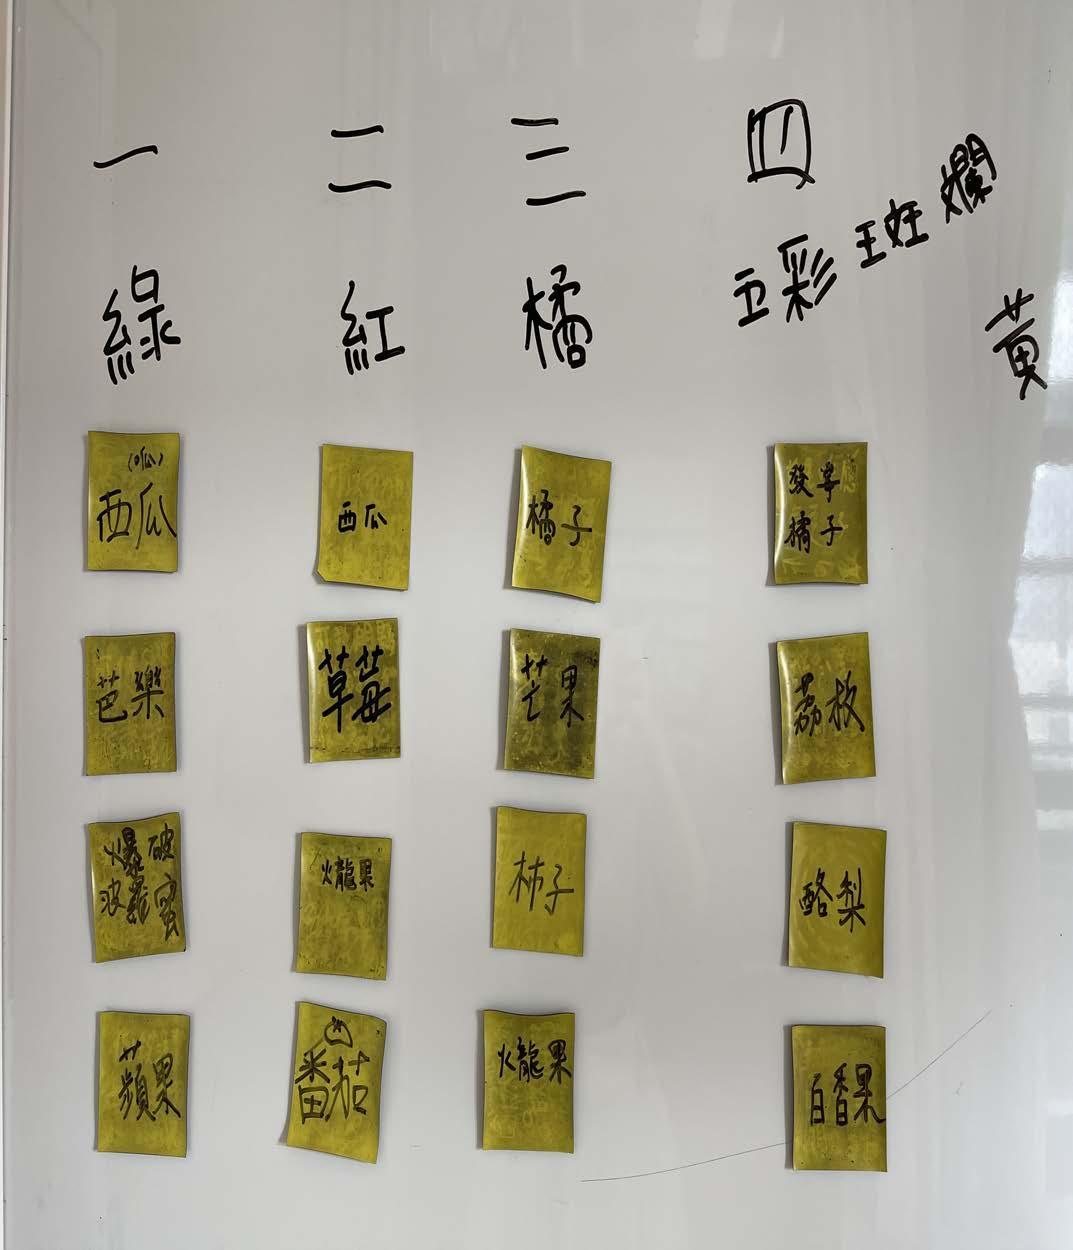 一 二 三 四
綠 紅 橘 五彩斑斕 黃
(呱)
西瓜
西瓜
橘子
發霉
橘子
芭樂
草莓
芒果
荔枝
爆破
波羅蜜
火龍果
柿子
酪梨
蘋果
番茄
火龍果
百香果